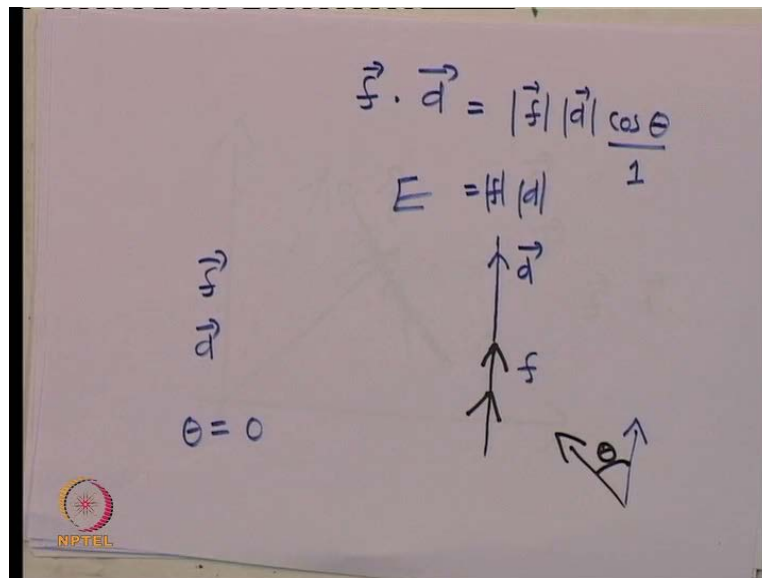 f⃗ . d⃗ = |f⃗| |d⃗| cos θ
1
E = |f| |d|
f⃗
d⃗
θ = 0
d⃗
f
θ
NPTEL